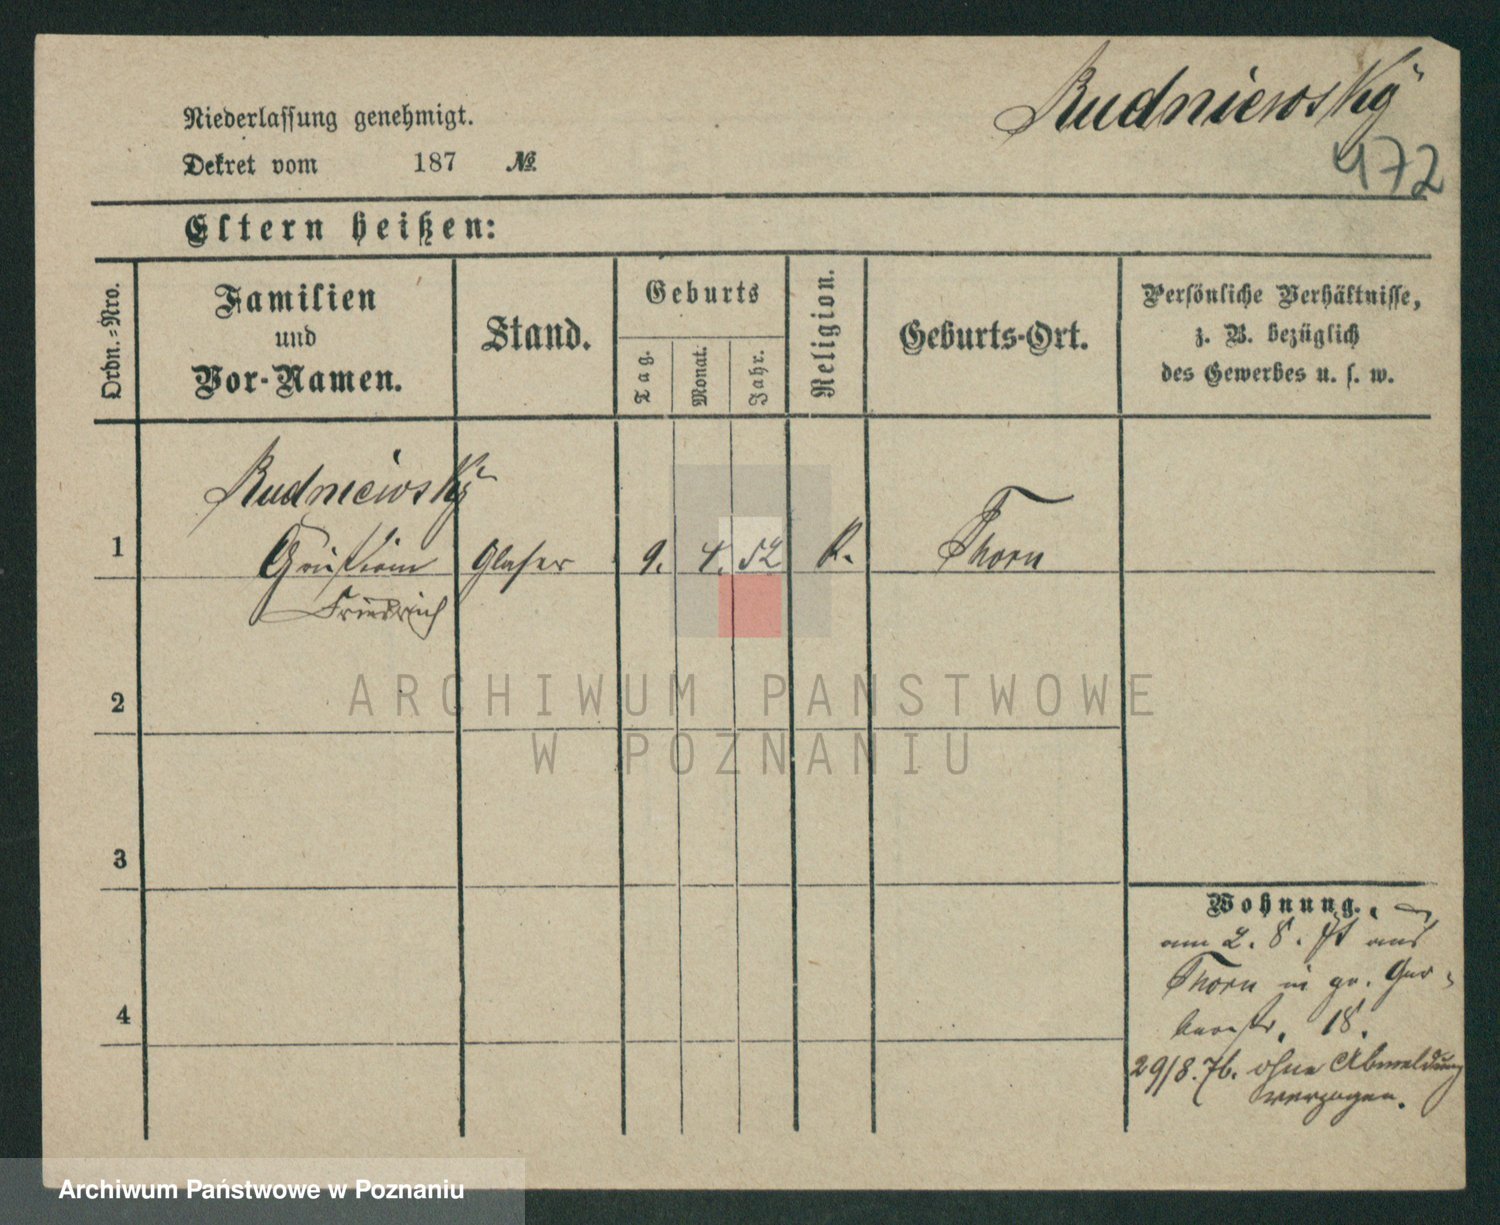 Rudniewsky
472
Niederlassung genehmigt.
Dekret vom 187 №
Eltern heißen:
Ordn.=Nro.
Familien
und
Vor-Namen.
Stand.
Geburts
Tag.
Monat.
Jahr.
Religion.
Geburts-Ort.
Persönliche Verhältnisse,
z. B. bezüglich
des Gewerbes u. s. w.
Rudniewsky
1 Christian Glaser 9. 4. 52 K. Thorn
Friedrich
2
3
4
Wohnung.
am 2. 8. aus
Thorn in gr. Ger
berstr. 18.
29/8.76. ohne Abmeldung
verzogen.
ARCHIWUM PAŃSTWOWE
W POZNANIU
Archiwum Państwowe w Poznaniu